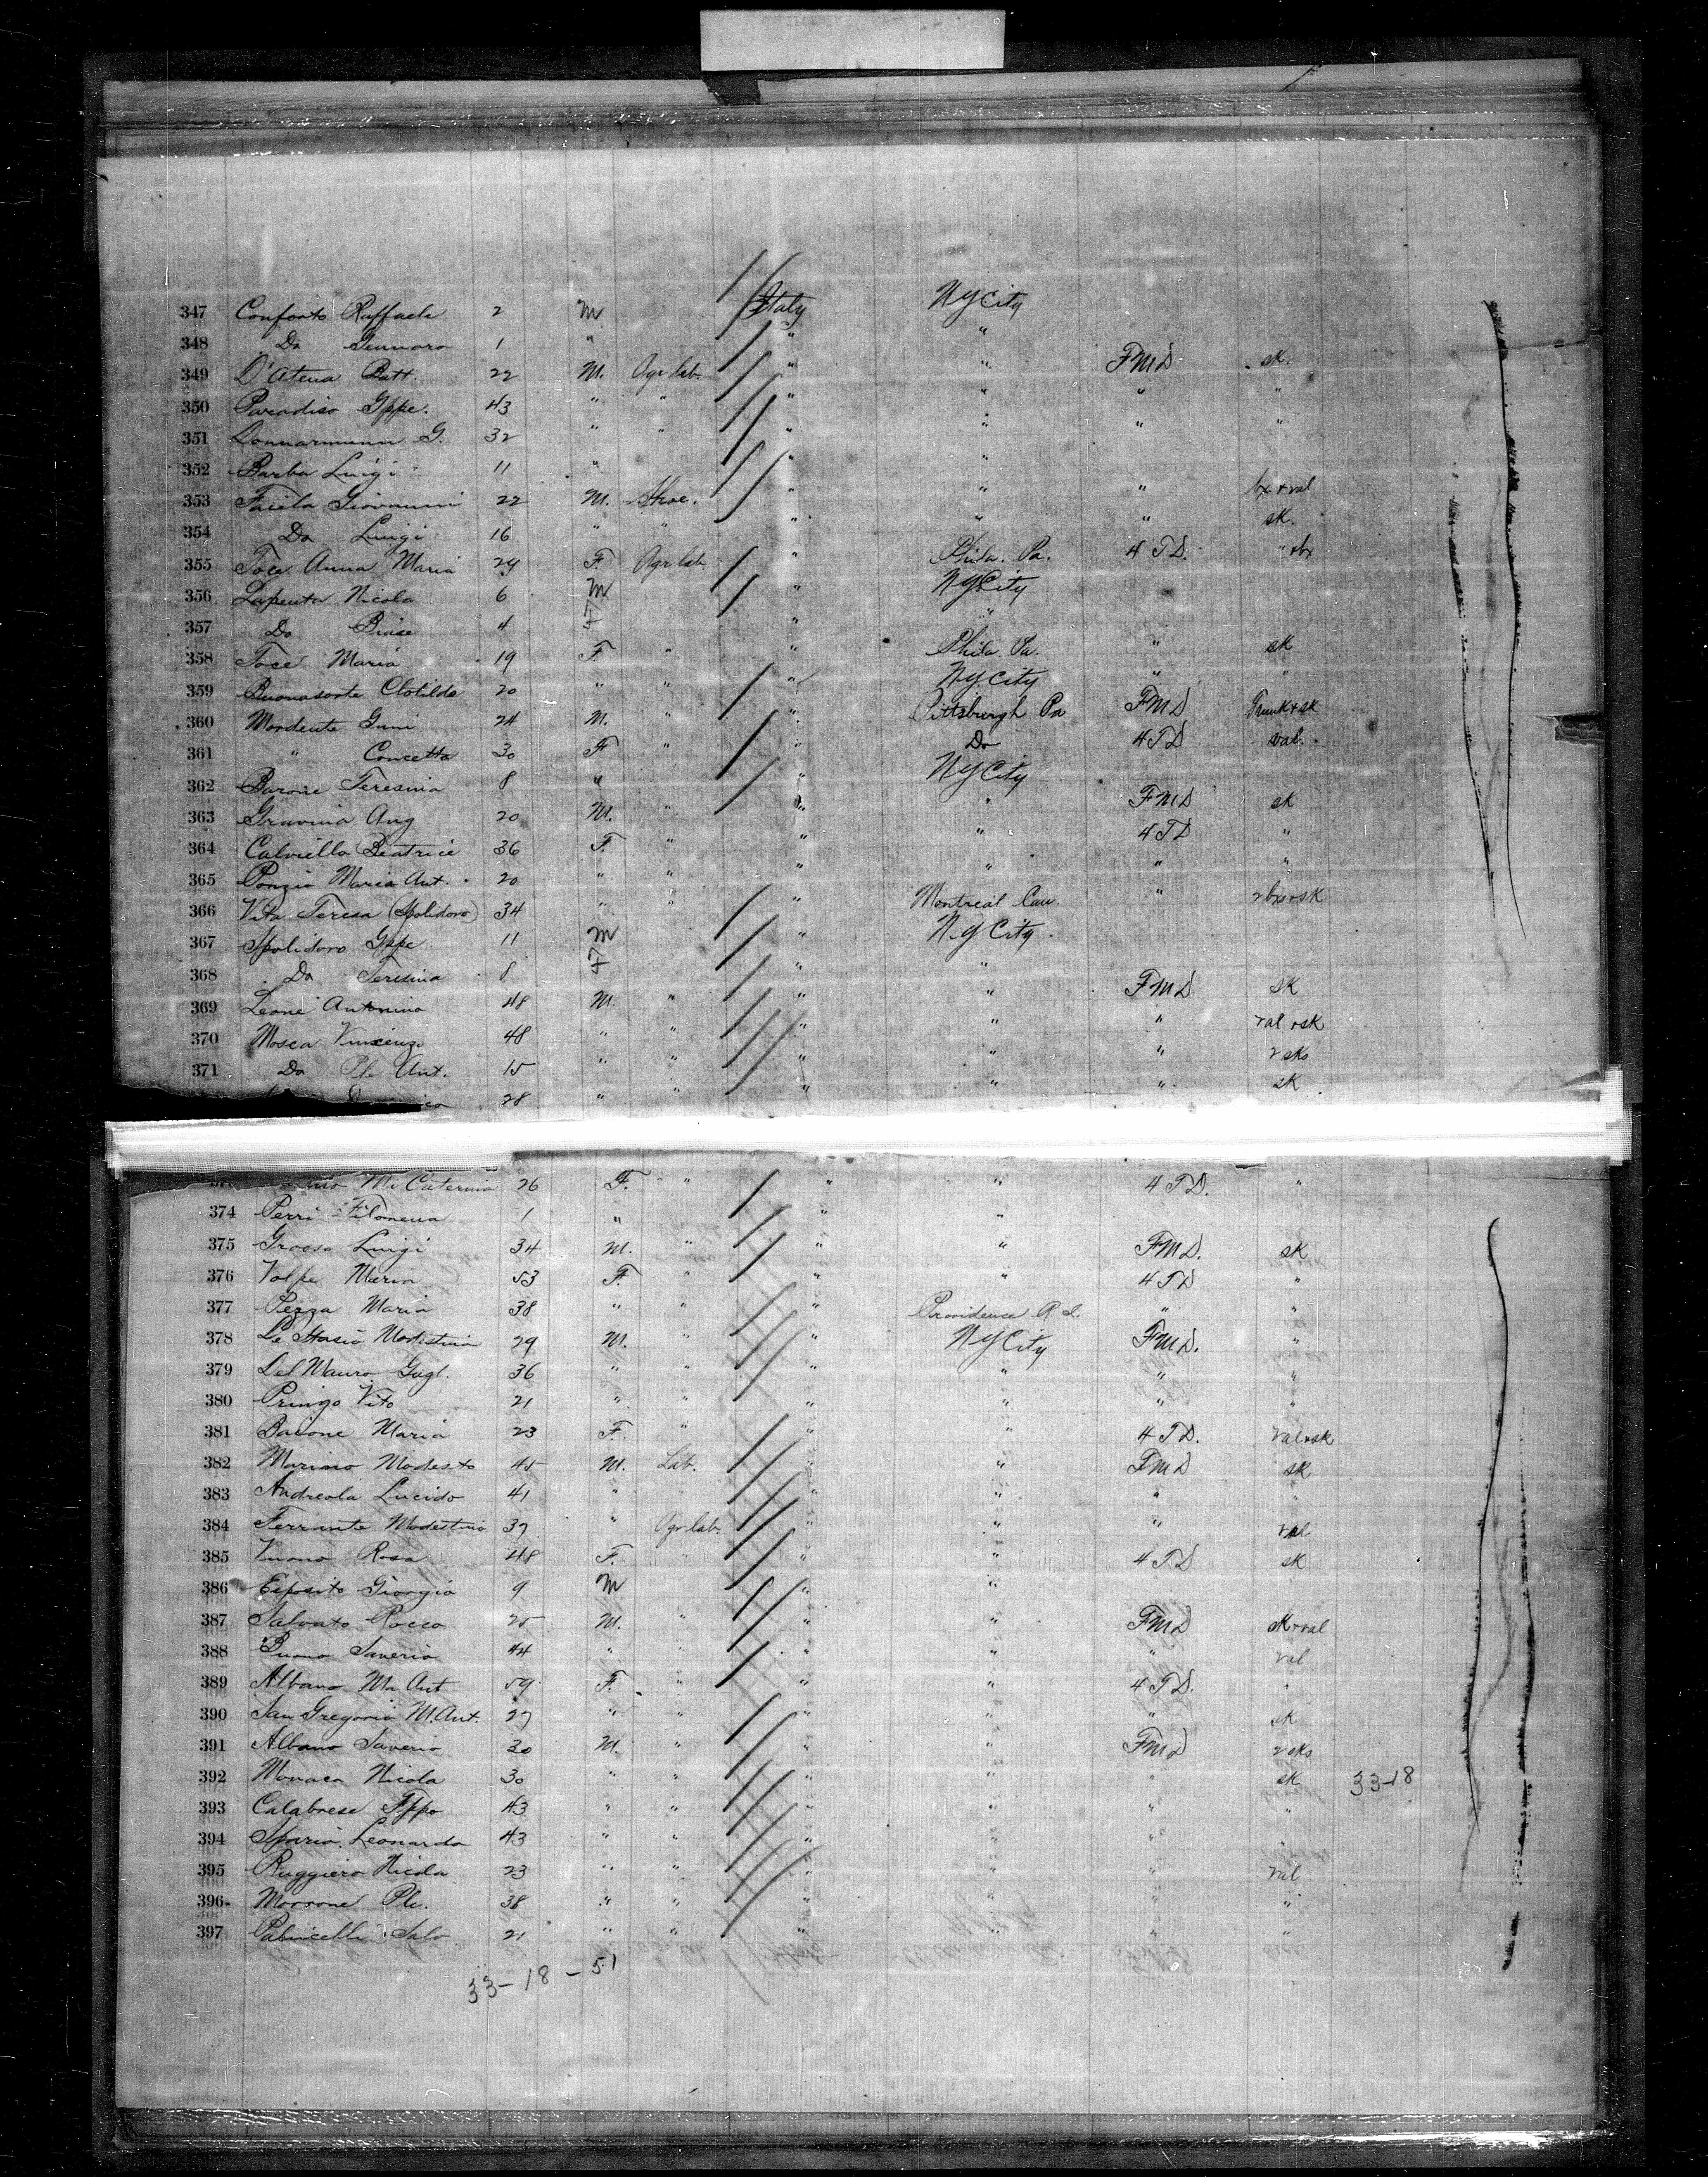 347 Conforto Raffaele 2 m Italy NYCity
348 Do Gennaro 1 " " "
349 D'Atena Batt. 22 M. Agr lab. " " FMD sk.
350 Paradiso Gppe. 43 " " " " " "
351 G. 32 " " " " " "
352 Barba Luigi 11 " " "
353 Giovanni 22 M. Shoe. " " " bx+val
354 Do Luigi 16 " " " " " sk.
355 Toce Anna Maria 24 F. Agr lab. " Phila. Pa. 4 TD. " +bx
356 Lapenta Nicola 6 m " NYCity
357 Do Biase 4 " " "
358 Toce Maria 19 F. " " Phila. Pa. " sk
359 Buonasorte Clotilde 20 " " " NYCity " "
360 Mordente 24 M. " " Pittsburgh Pa FMD Trunk+sk
361 " Concetta 30 F " " Do 4TD val.
362 Barone Teresina 8 " " NYCity
363 Gravina Ang 20 M. " " " FMD sk
364 Calviello Beatrice 36 F. " " " 4TD "
365 Ponzio Maria Ant. 20 " " " " " "
366 Vita Teresa (Spolidoro) 34 " " " Montreal Can. " 2bxs+sk
367 Spolidoro Gppe 11 m " N.Y City
368 Do Teresina 8 " "
369 Leone Antonino 48 M. " " " FMD sk
370 Mosca Vincenzo 48 " " " " " val+sk
371 Do Ant. 15 " " " " " 2 sks
28 " " " " " sk
Ma Caterina 26 F. " " " 4 TD. "
374 Perri Filomena 1 " " "
375 Grosso Luigi 34 M. " " " FMD. sk
376 Volpe Maria 53 F. " " " 4TD "
377 Pezza Maria 38 " " " Providence R.I. " "
378 De Stasio Modestino 29 M. " " NYCity FMD. "
379 Del Mauro Gugl. 36 " " " " " "
380 Pringo Vito 21 " " " " " "
381 Barone Maria 23 F. " " " 4 TD. val+sk
382 Marino Modesto 45 M. Lab. " " FMD sk
383 Andreola Lucido 41 " " " " " "
384 Ferrante Modestino 37 " Agr lab. " " " val
385 Vuono Rosa 48 F. " " " 4TD sk
386 Esposito Giorgio 9 m " "
387 Salvato Rocco 25 M. " " " FMD sk+val
388 Buono Saverio 44 " " " " " val
389 Albano Ma Ant 59 F. " " " 4TD. "
390 San Gregorio M. Ant. 27 " " " " " sk
391 Albano Saverio 30 M. " " " FMD 2 sks
392 Monaca Nicola 30 " " " " " sk 33-18
393 Calabrese Fppo 43 " " " " " "
394 Leonardo 43 " " " " " "
395 Ruggiero Nicola 23 " " " " " val
396 Morrone 38 " " " " " "
397 Salv 21 " " " " " "
33-18-51